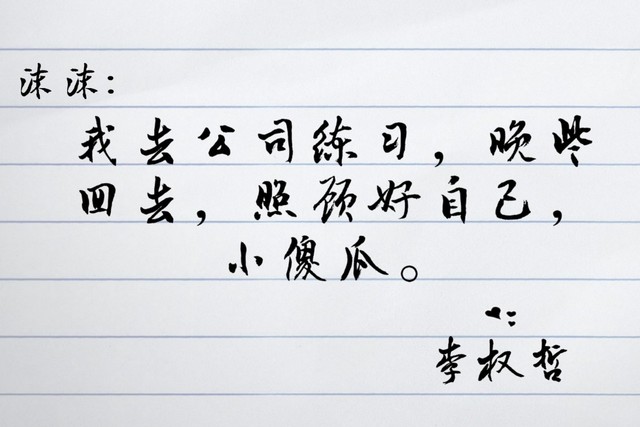 沫沫：
我去公司练习，晚些
回去，照顾好自己，
小傻瓜。
❤：
李权哲